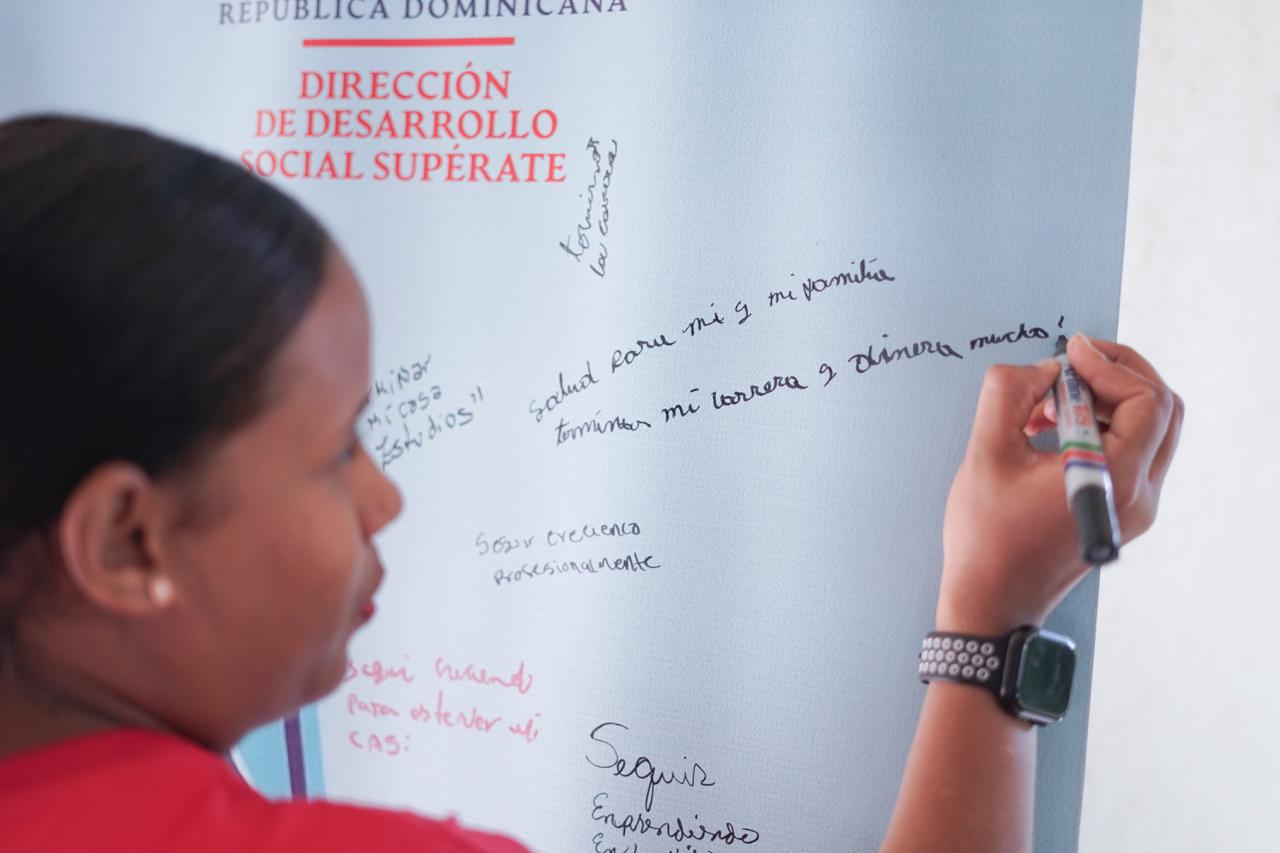 REPÚBLICA DOMINICANA
DIRECCIÓN
DE DESARROLLO
SOCIAL SUPÉRATE
terminar
la carrera
salud para mi y mi familia
terminar mi carrera y dinero mucho!
mi casa
Estudios"
Seguir creciendo
profesionalmente
seguir creciendo
para obtener mi
CAS:
Seguir
Emprendiendo